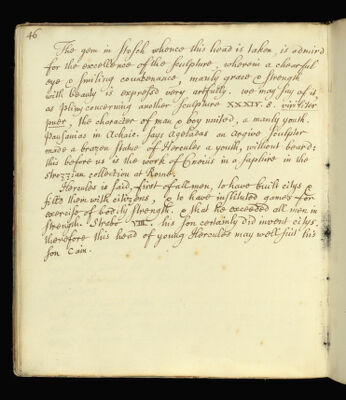 46
The gem in Stosch whence this head is taken, is admir'd
for the excellence of the sculpture, wherein a chearful
eye & smiling countenance, manly grace & strength
with beauty is expressed very artfully. we may say of it,
as Pliny concerning another sculpture XXXIV. 8. viriliter
puer, the character of man & boy united, a manly youth.
Pausanias in Achaic. says Ageladas an Argive sculptor
made a brazen statue of Hercules a youth, without beard:
this before us is the work of Cneius in a saphire in the
Strozzian collection at Rome.
Hercules is said, first of all men, to have built citys &
fill'd them with citizens, & to have instituted games for
exercise of bodily strength. & that he exceeded all men in
strength. Strabo VIII. his son certainly did invent citys.
therefore this head of young Hercules may well suit his
son Cain.